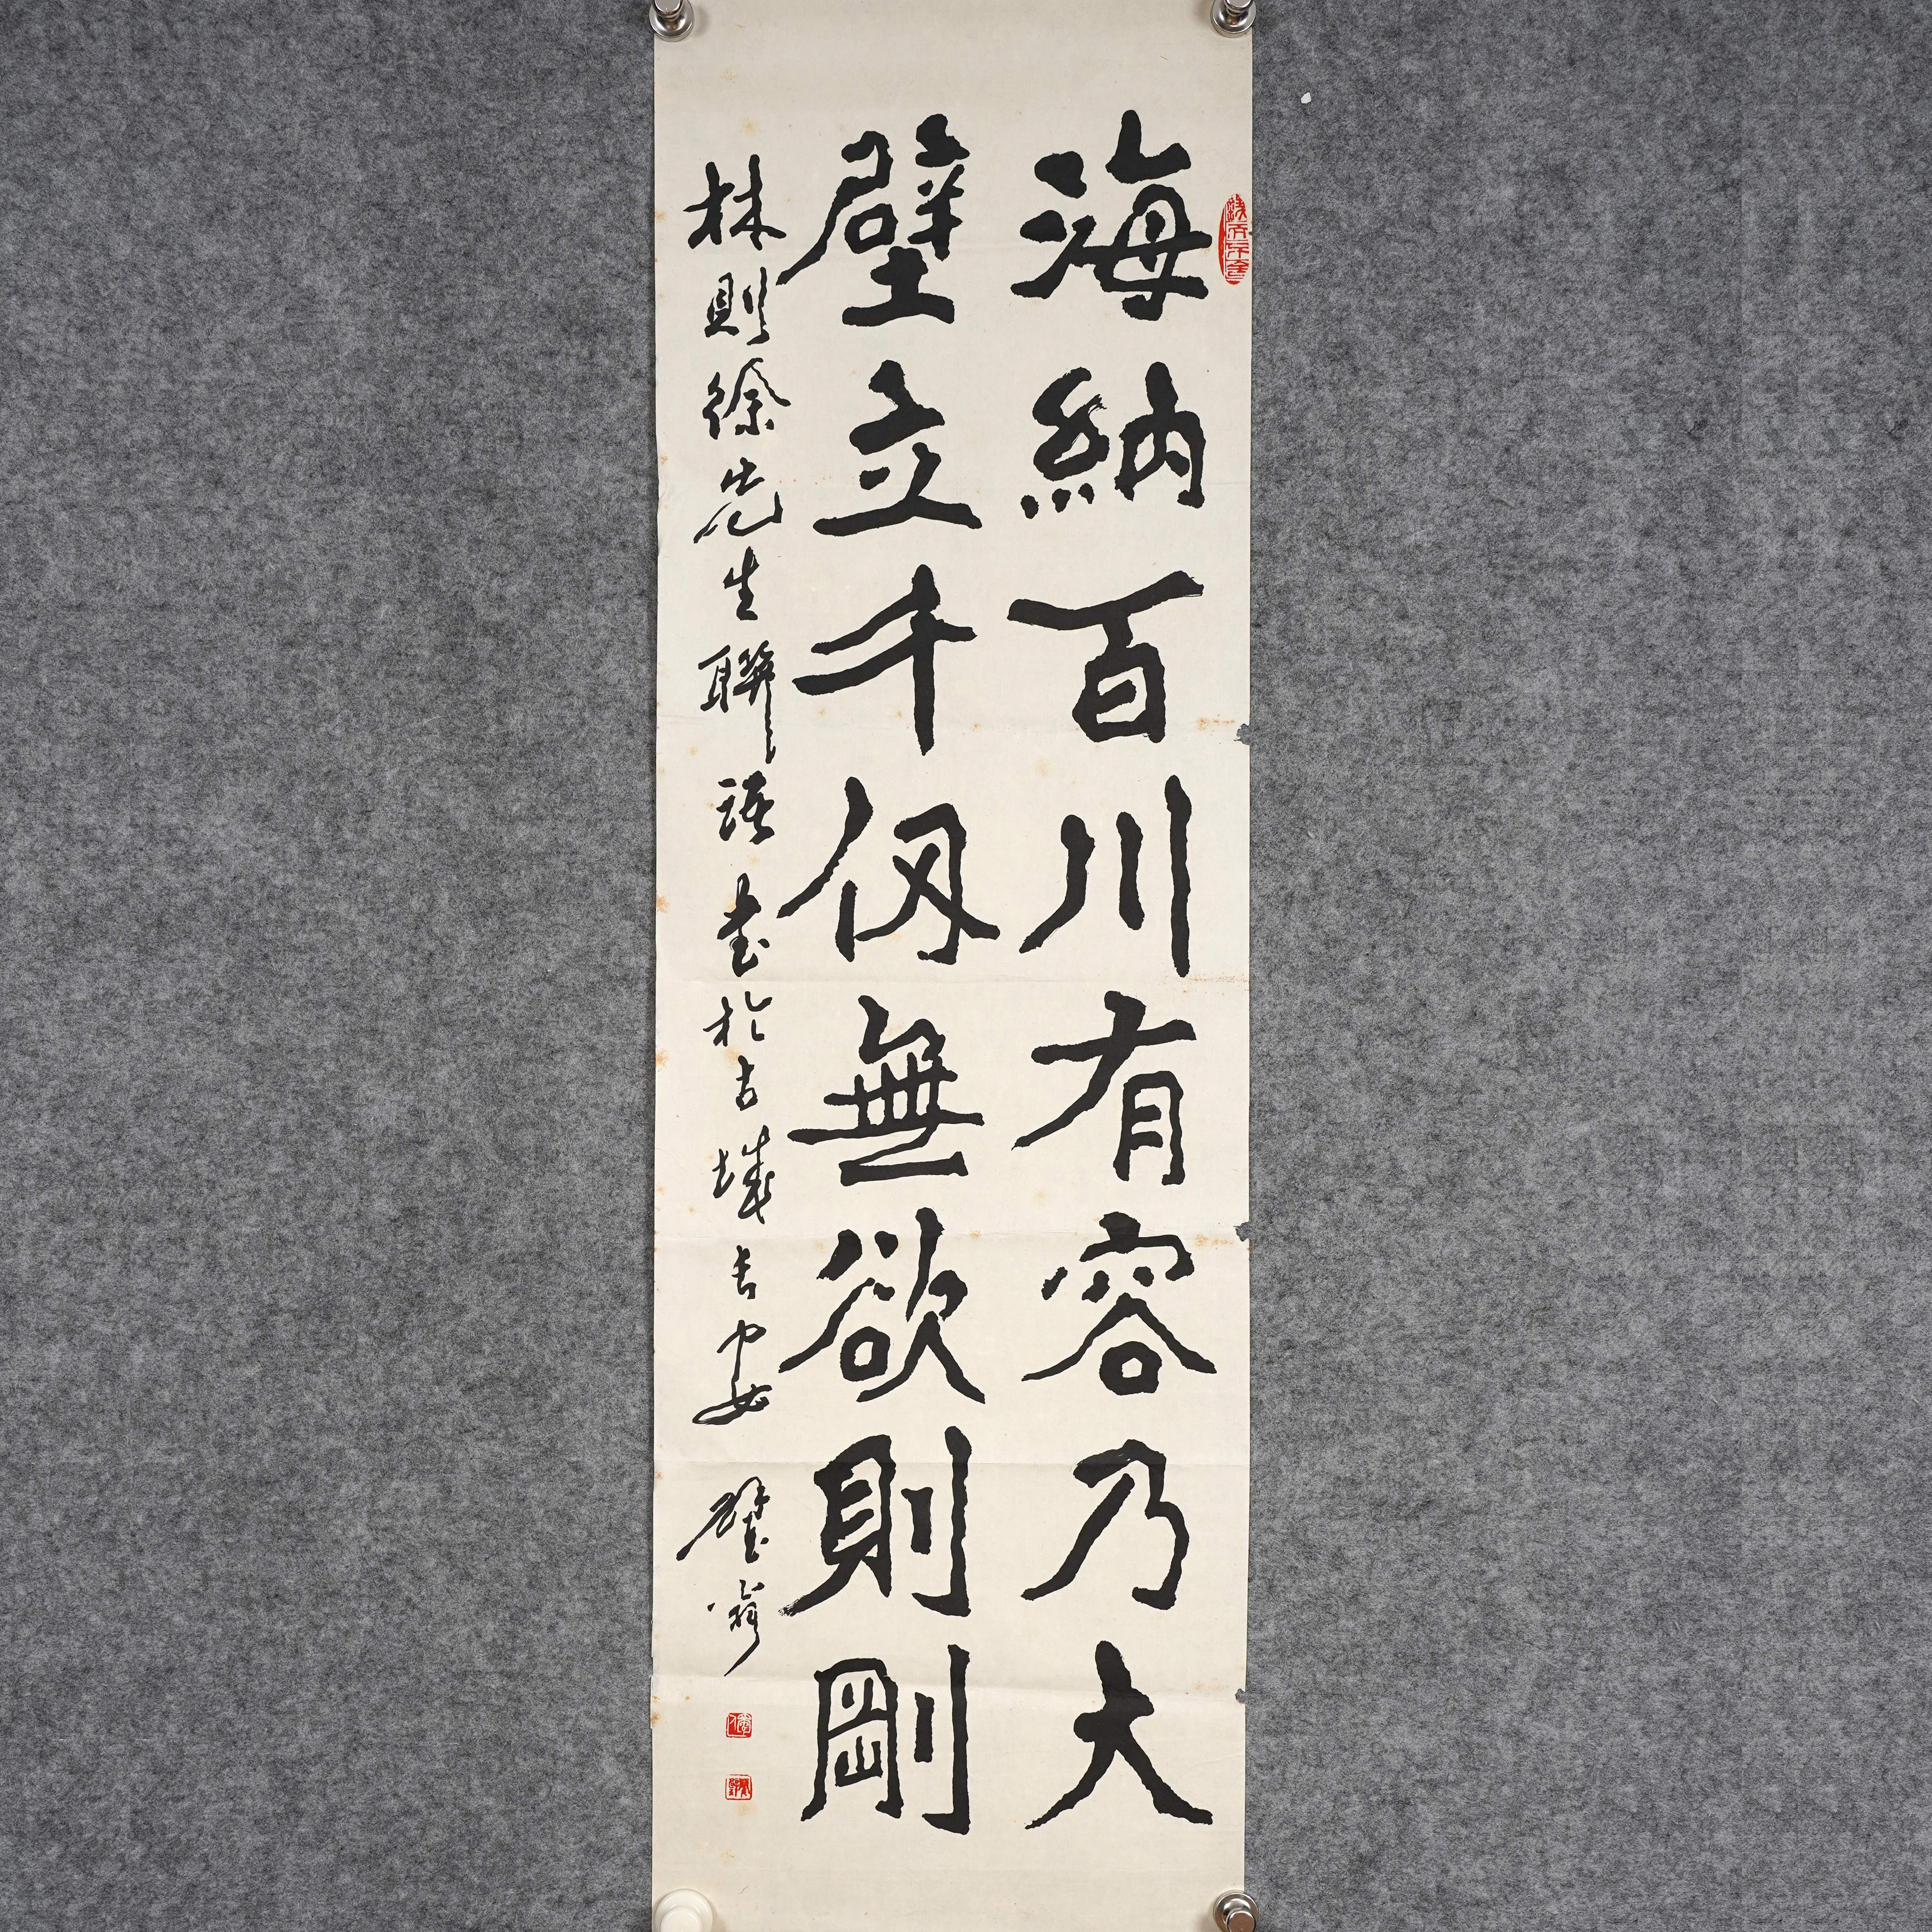 海納百川有容乃大
壁立千仞無欲則剛
林則徐先生聯語書於古城長安